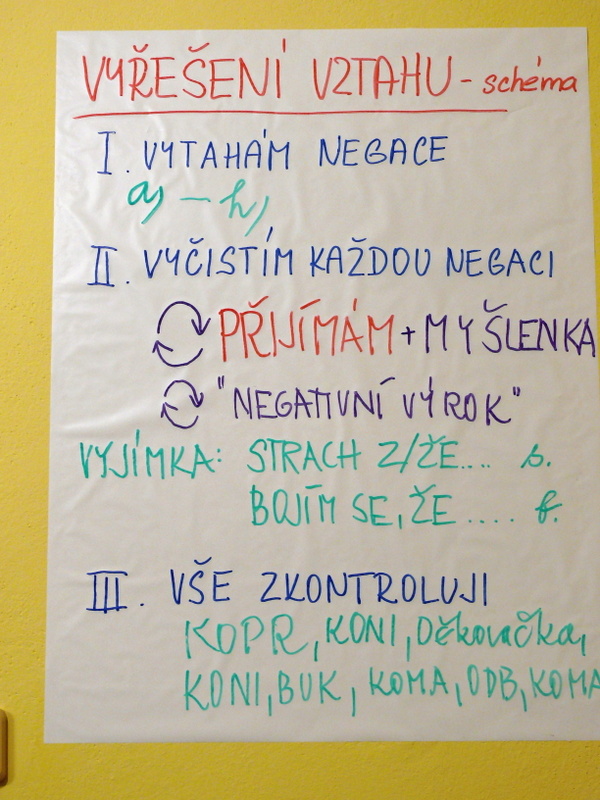 VYŘEŠENÍ VZTAHU - schéma
I. VYTAHÁM NEGACE
a) - h)
II. VYČISTÍM KAŽDOU NEGACI
PŘIJÍMÁM + MYŠLENKA
"NEGATIVNÍ VÝROK"
VYJÍMKA: STRACH Z/ŽE.... s.
BOJÍM SE, ŽE .... f.
III. VŠE ZKONTROLUJI
KOPR, KONI, Děkovačka,
KONI, BUK, KOMA, ODB, KOMA